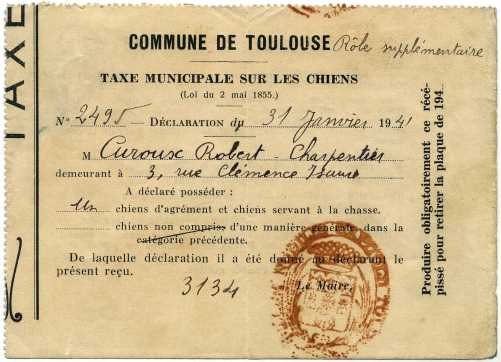 TAXE
COMMUNE DE TOULOUSE Rôle supplémentaire
TAXE MUNICIPALE SUR LES CHIENS
(Loi du 2 mai 1855.)
N° 2495 DÉCLARATION du 31 Janvier 1941
M Curoux Robert - Charpentier
demeurant à 3, rue Clémence Isaure
A déclaré posséder :
Un chiens d'agrément et chiens servant à la chasse.
chiens non compris d'une manière générale dans la
catégorie précédente.
De laquelle déclaration il a été donné au déclarant le
présent reçu.
Le Maire,
3134
Produire obligatoirement ce récé-
pissé pour retirer la plaque de 194